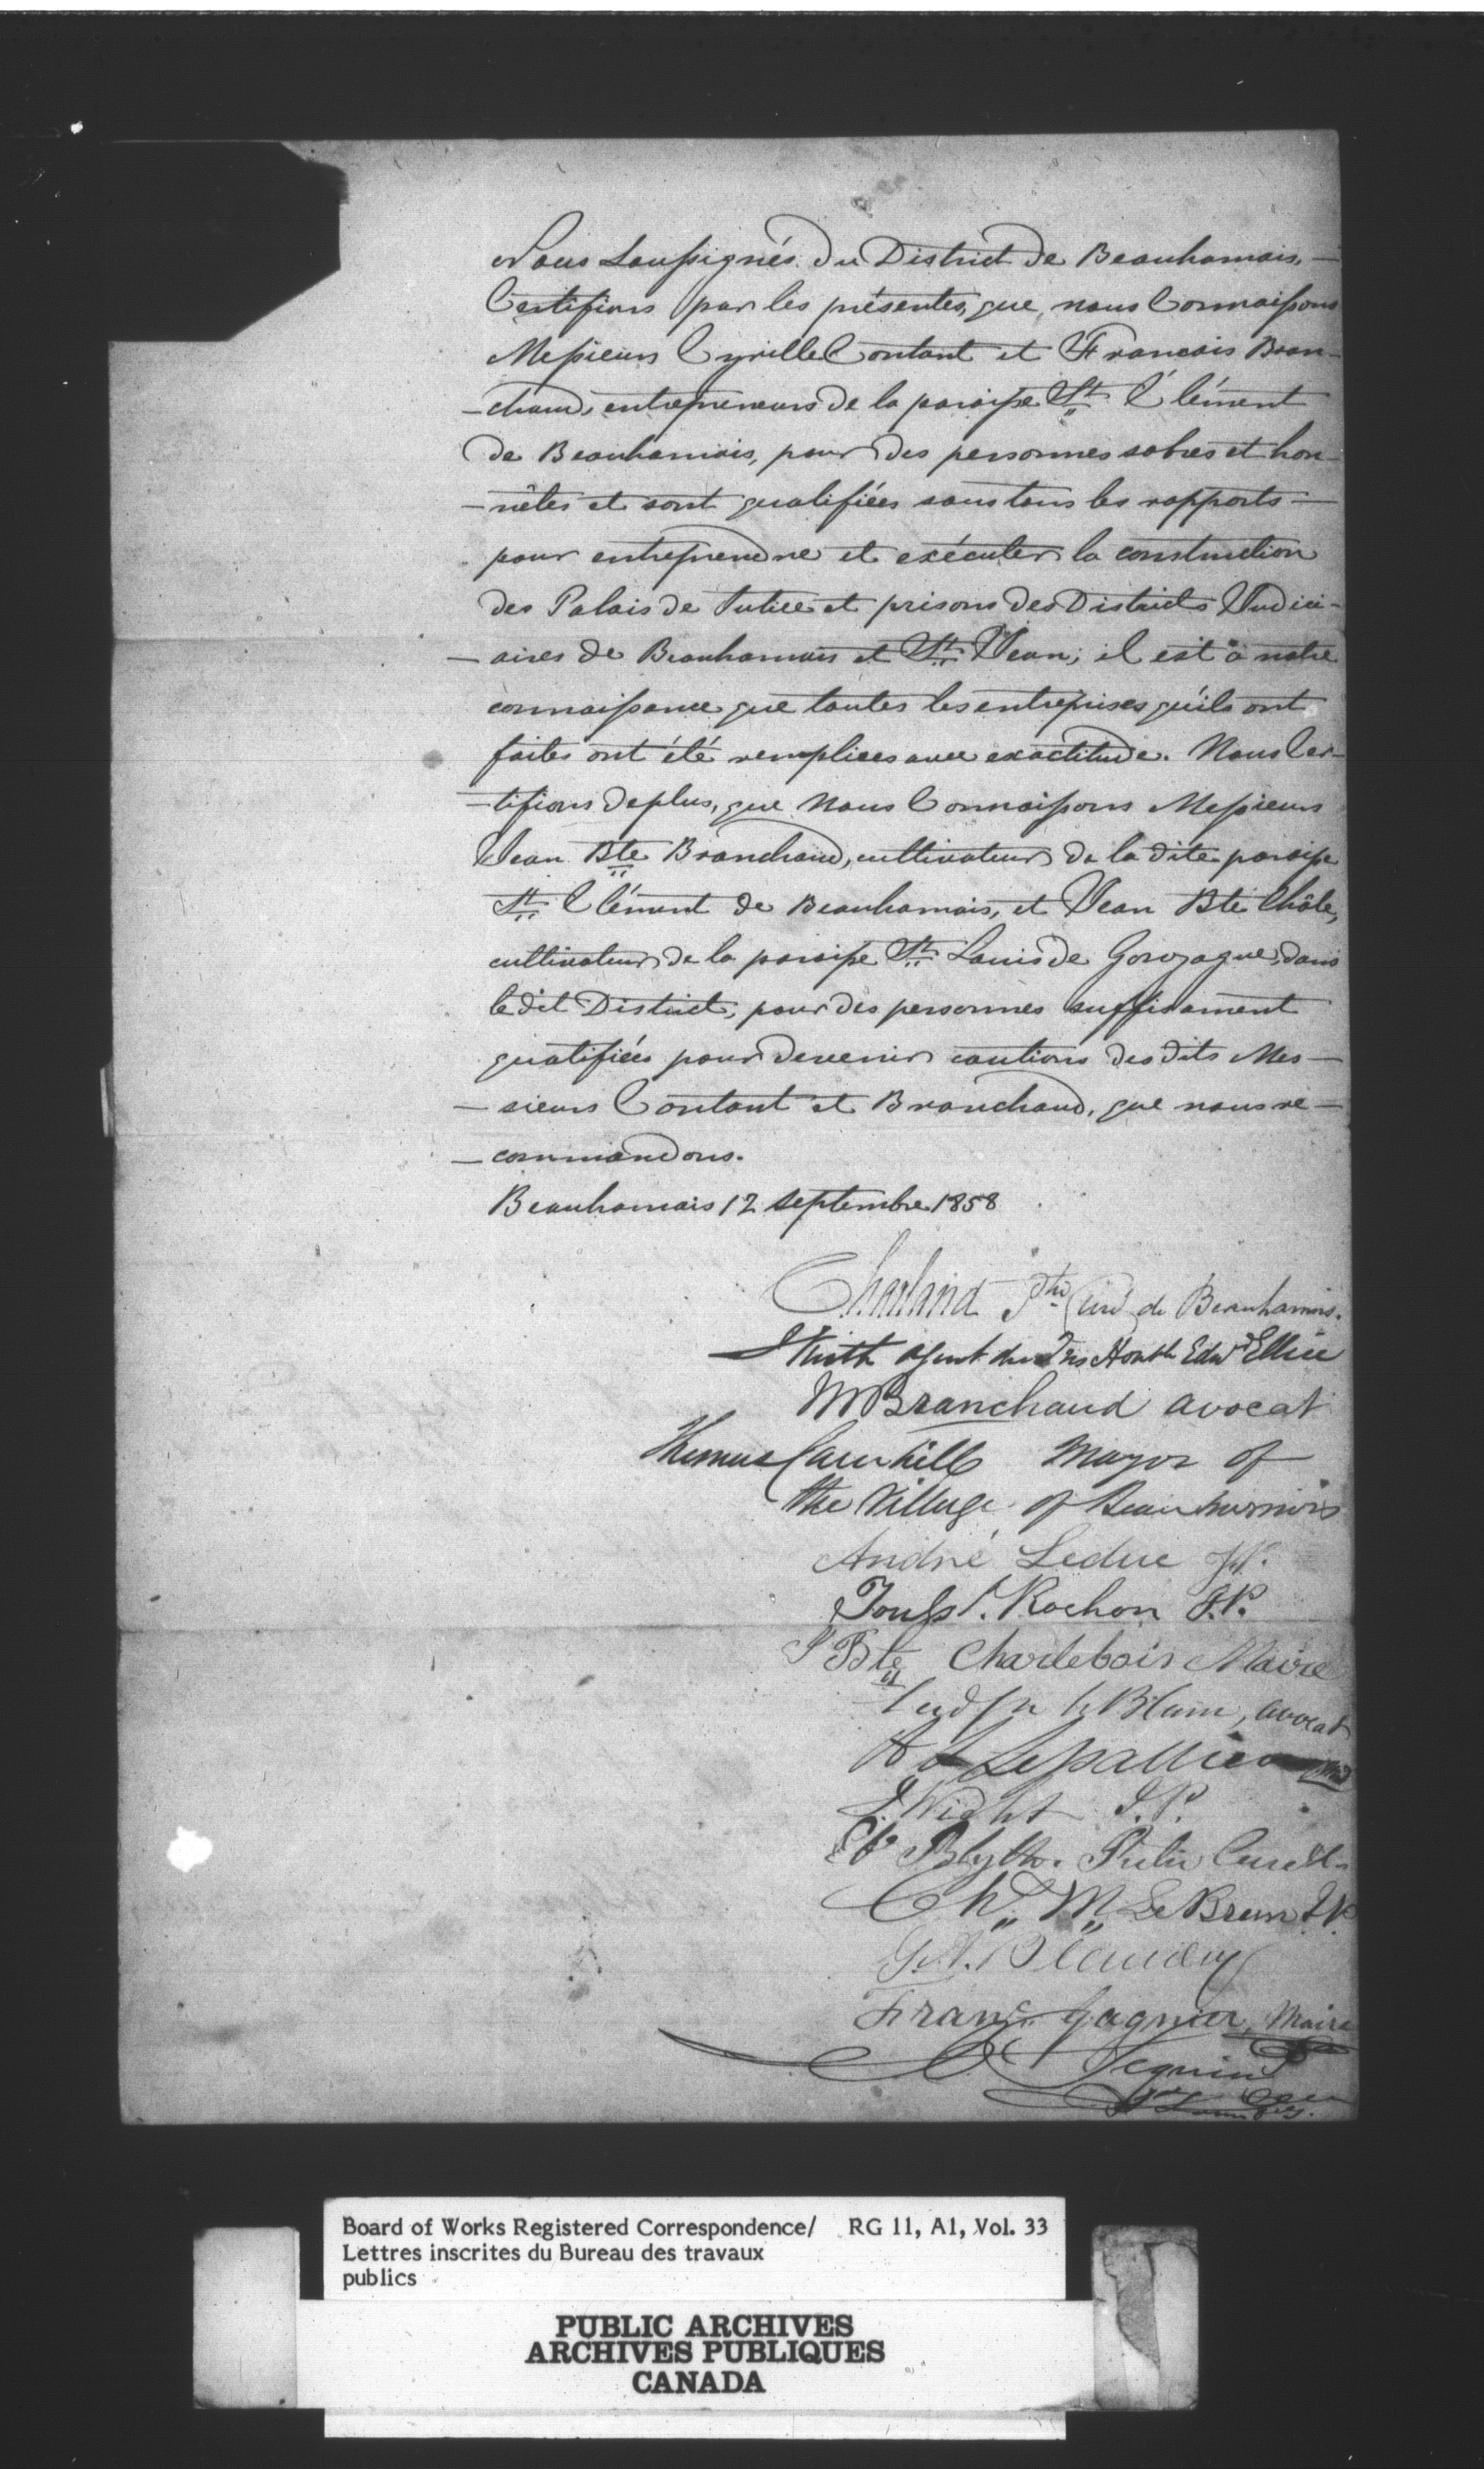 Nous Soussignés du District de Beauharnais,
Certifions par les présentes, que, nous Connaissons
Messieurs Cyrille Contant et Francois Bran-
-chaud, entrepreneurs de la paroisse St. Clément
de Beauharnais, pour des personnes sobres et hon-
-nêtes et sont qualifiées sous tous les rapports
pour entreprendre et exécuter la construction
des Palais de Justice et prisons des Districts Judici-
-aires de Beauharnais et St. Jean; il est à notre
connaissance que toutes les entreprises qu'ils ont
faites ont été remplies avec exactitude. Nous Cer-
-tifions de plus, que Nous Connaissons Messieurs
Jean Bte Branchaud, cultivateur de la dite paroisse
St. Clément de Beauharnais, et Jean Bte
cultivateur de la paroisse St. Louis de Gonzague, dans
le dit District, pour des personnes suffisament
qualifiées pour devenir cautions des dits Mes-
-sieurs Contant et Branchaud, que nous re-
-commandons.
Beauharnais 12 septembre 1858
Charland Ptre Curé de Beauharnois.
Keith agent du Très Honble Edwd Ellice
M Branchaud avocat
Thomas Mayor of
the Village of Beauharnois
André Leduc
Rochon J.P.
J Bte Charlebois Maire
avocat
J.P.
Chs M. LeBrun J.P.
Franc. Gagnier, Maire
Seguin
Board of Works Registered Correspondence/ RG 11, A1, Vol. 33
Lettres inscrites du Bureau des travaux
publics
PUBLIC ARCHIVES
ARCHIVES PUBLIQUES
CANADA